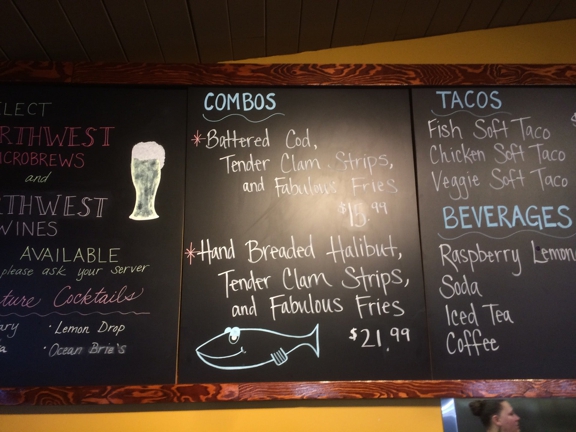 ELECT
RTHWEST
CROBREWS
and
THWEST
WINES
AVAILABLE
please ask your server
ture Cocktails
ary
• Lemon Drop
a
• Ocean Brie's
COMBOS
*Battered Cod,
Tender Clam Strips,
and Fabulous Fries
$15.99
*Hand Breaded Halibut,
Tender Clam Strips,
and Fabulous Fries
$21.99
TACOS
Fish Soft Taco
Chicken Soft Taco
Veggie Soft Taco
BEVERAGES
Raspberry Lemon
Soda
Iced Tea
Coffee